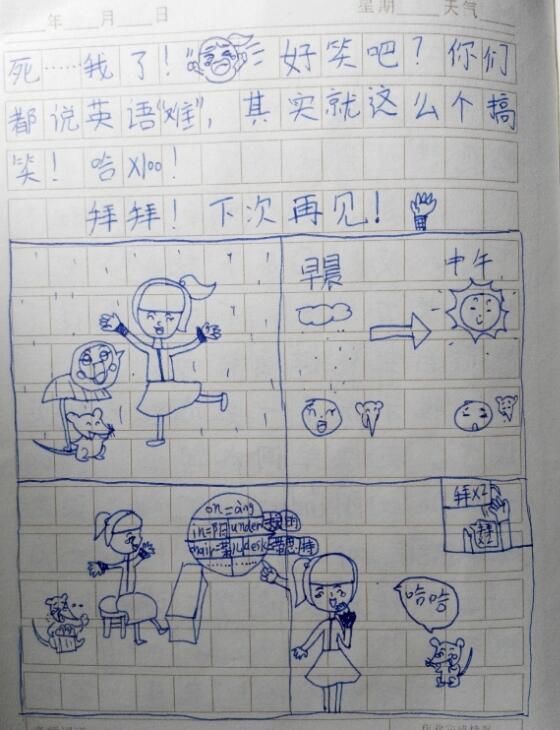 年 月 日 星期 天气
死……我了！好笑吧？你们
都说英语“难”，其实就这么个搞
笑！哈X100！
拜拜！下次再见！
早晨
中午
拜X2
on=àng
in=阴 under=
desk=
……
哈哈